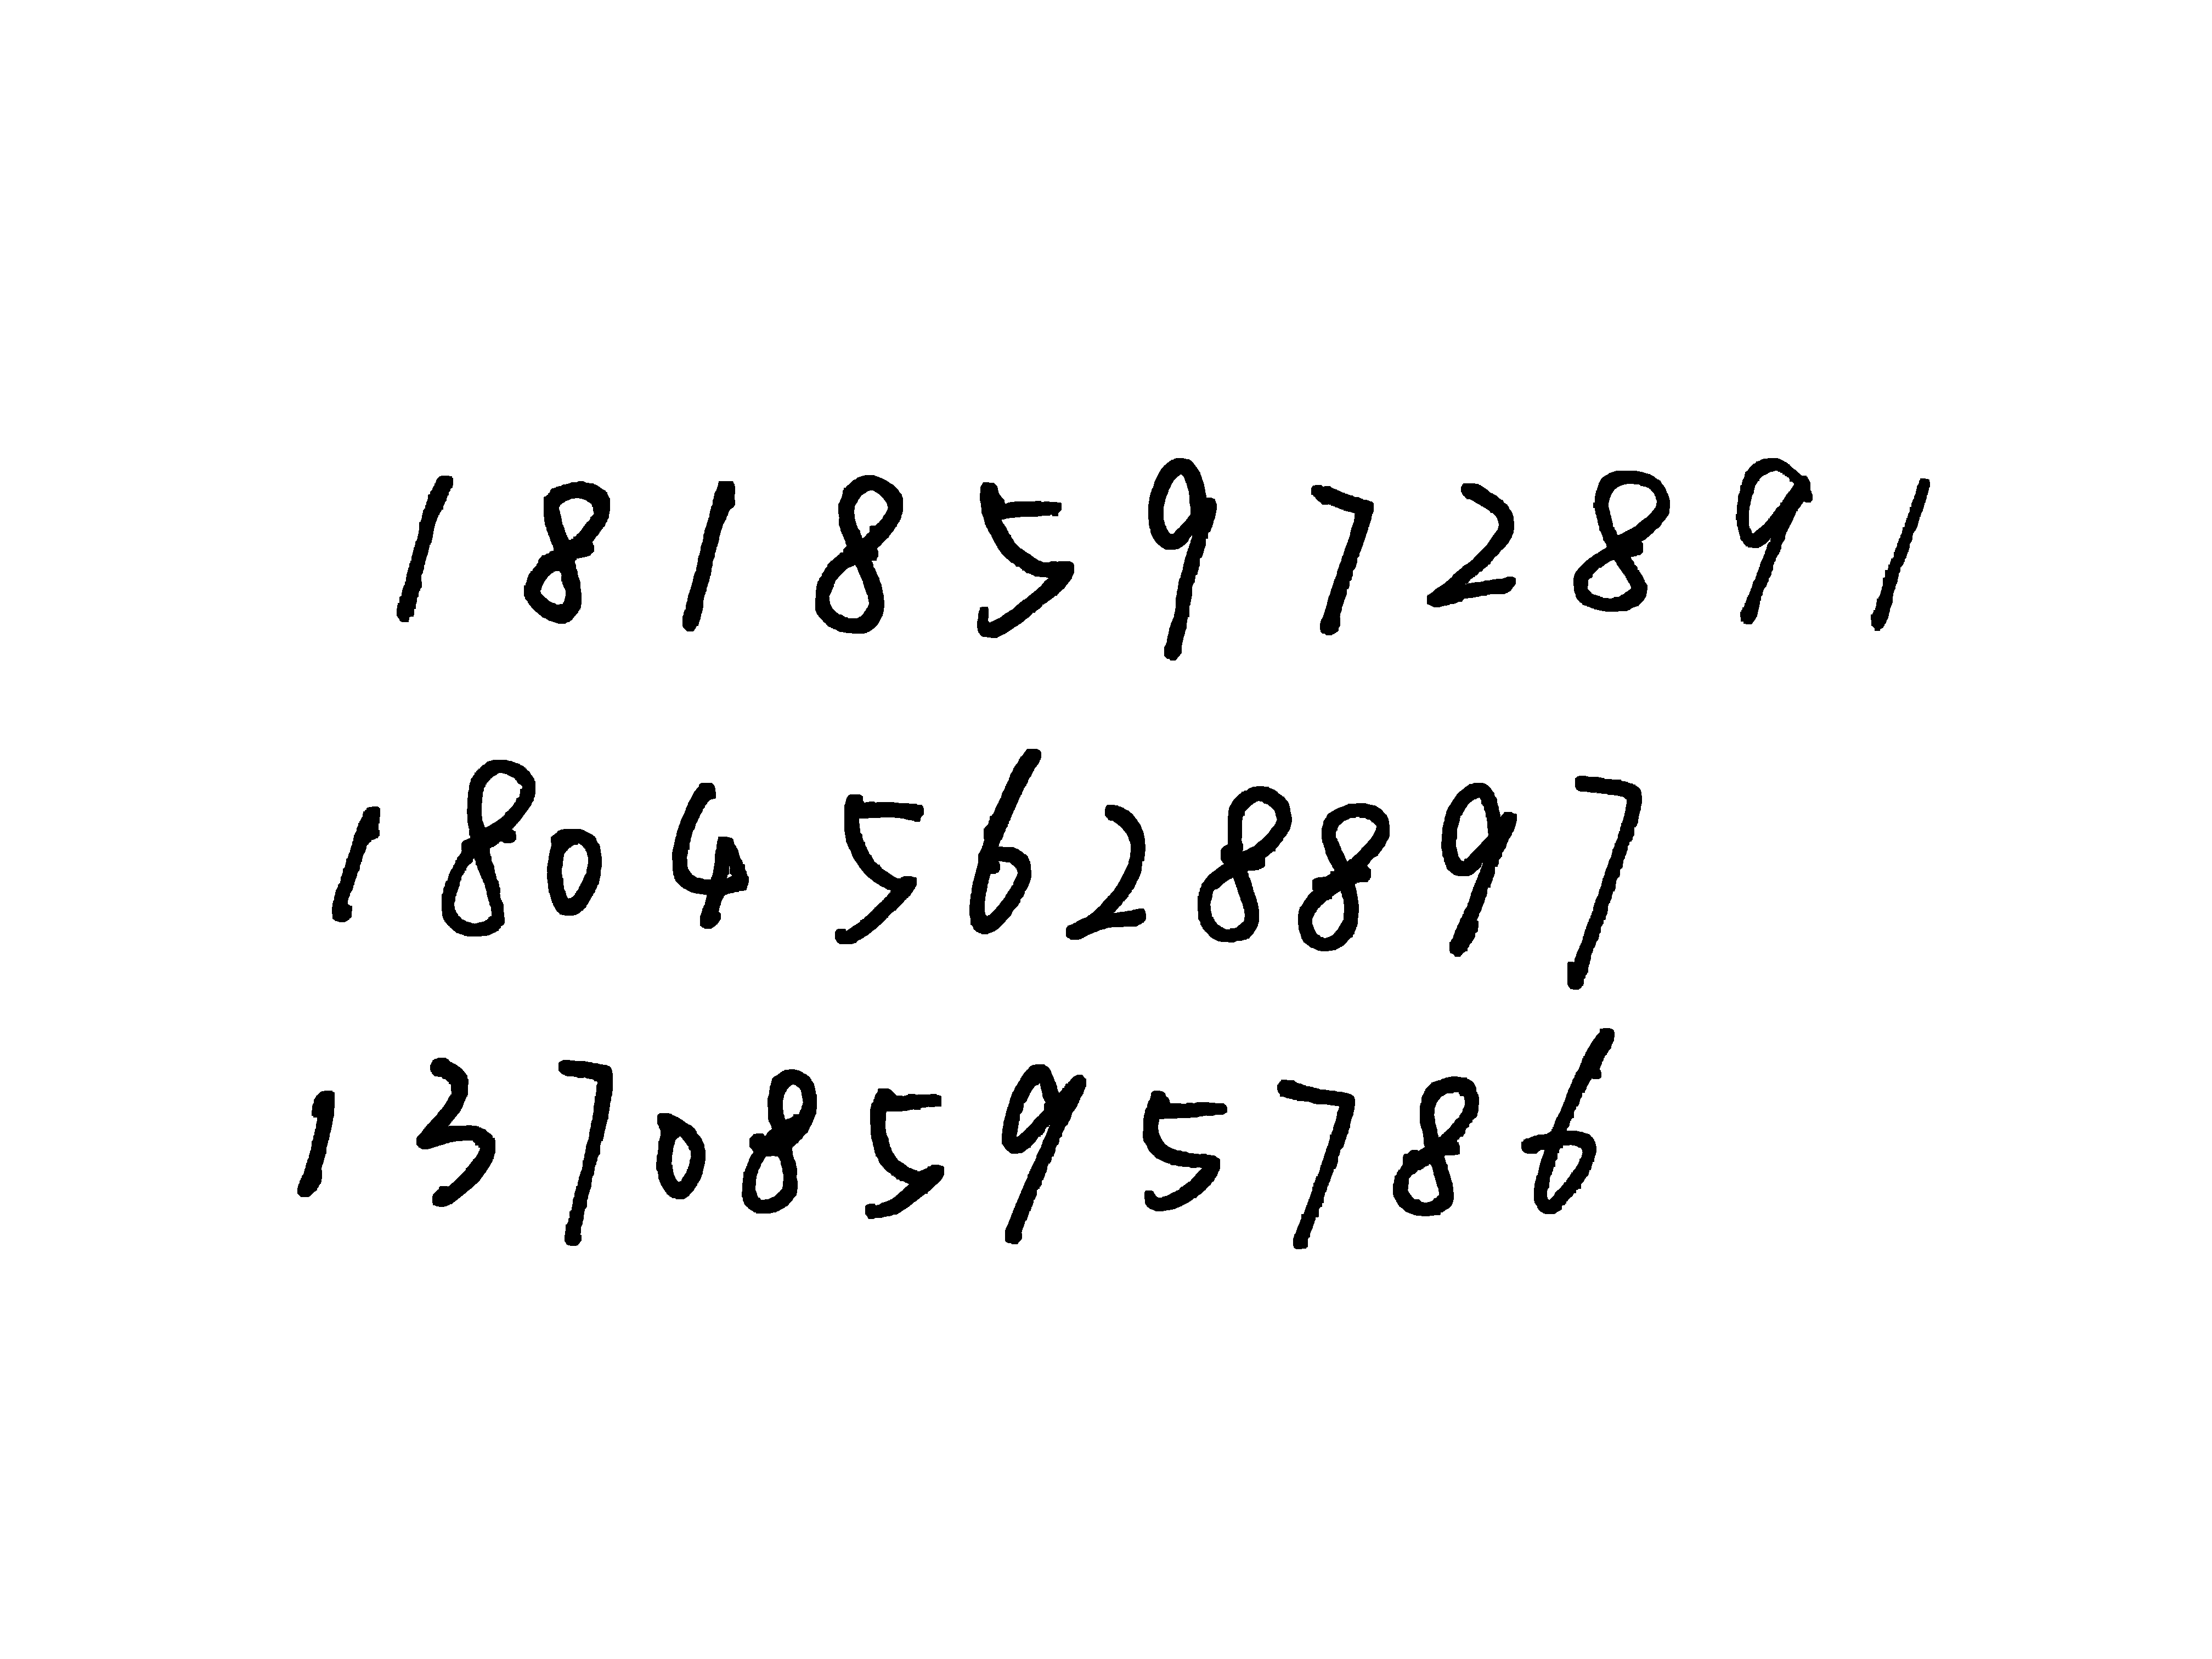 18185972891
18045628897
13708595786